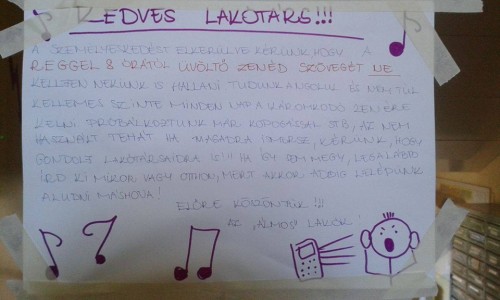 KEDVES LAKÓTÁRS!!!
A SZEMÉLYESKEDÉST ELKERÜLVE KÉRÜNK HOGY A
REGGEL 8 ÓRÁTÓL ÜVÖLTŐ ZENÉD SZÖVEGÉT NE
KELLJEN NEKÜNK IS HALLANI TUDUNK ANGOLUL ÉS NEM TÚL
KELLEMES SZINTE MINDEN NAP A KÁROMKODÓ ZENÉRE
KELNI PRÓBÁLKOZTUNK MÁR KOPOGÁSSAL STB, AZ NEM
HASZNÁLT TEHÁT HA MAGADRA ISMERSZ, KÉRÜNK, HOGY
GONDOLJ LAKÓTÁRSAIDRA IS!!! HA ÍGY SEM MEGY, LEGALÁBB
ÍRD KI MIKOR VAGY OTTHON, MERT AKKOR ADDIG ELMEGYÜNK
ALUDNI MÁSHOVA!
ELŐRE KÖSZÖNTÜK !!!
AZ „ÁLMOS" LAKÓK